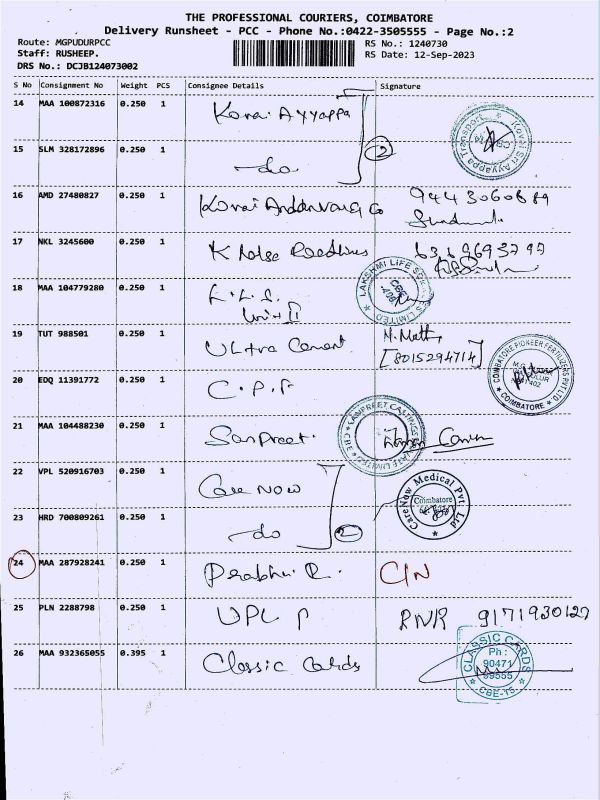 THE PROFESSIONAL COURIERS, COIMBATORE
Delivery Runsheet - PCC - Phone No.:0422-3505555 - Page No.:2
Route: MGPUDURPCC RS No.: 1240730
Staff: RUSHEEP. RS Date: 12-Sep-2023
DRS No.: DCJB124073002
S No Consignment No Weight PCS Consignee Details Signature
14 MAA 100872316 0.250 1 Kovai Ayyappa
Kovai Sri Ayyappa Transport
15 SLM 328172896 0.250 1 -do 2
16 AMD 27480827 0.250 1 Kovai Co 9443060689
17 NKL 3245600 0.250 1 K
18 MAA 104779280 0.250 1 L.L.S.
Unit II
LAKSHMI LIFE LIMITED
19 TUT 988501 0.250 1 Ultra Cement M.
[8015294714]
20 EDQ 11391772 0.250 1 C.P.F
COIMBATORE PIONEER FERTILIZERS PVT LTD
COIMBATORE
21 MAA 104488230 0.250 1 Sanpreet.
SANPREET CASTINGS LIMITED CBE
22 VPL 520916703 0.250 1 Care Now
CareNow Medical Pvt. Ltd
Coimbatore
23 HRD 700809261 0.250 1 -do 2
24 MAA 287928241 0.250 1 Prabhu R. C/N
25 PLN 2288798 0.250 1 UPL P RNR 9171930127
26 MAA 932365055 0.395 1 Classic Cards
CLASSIC CARDS
Ph :
90471
99555
CBE-15